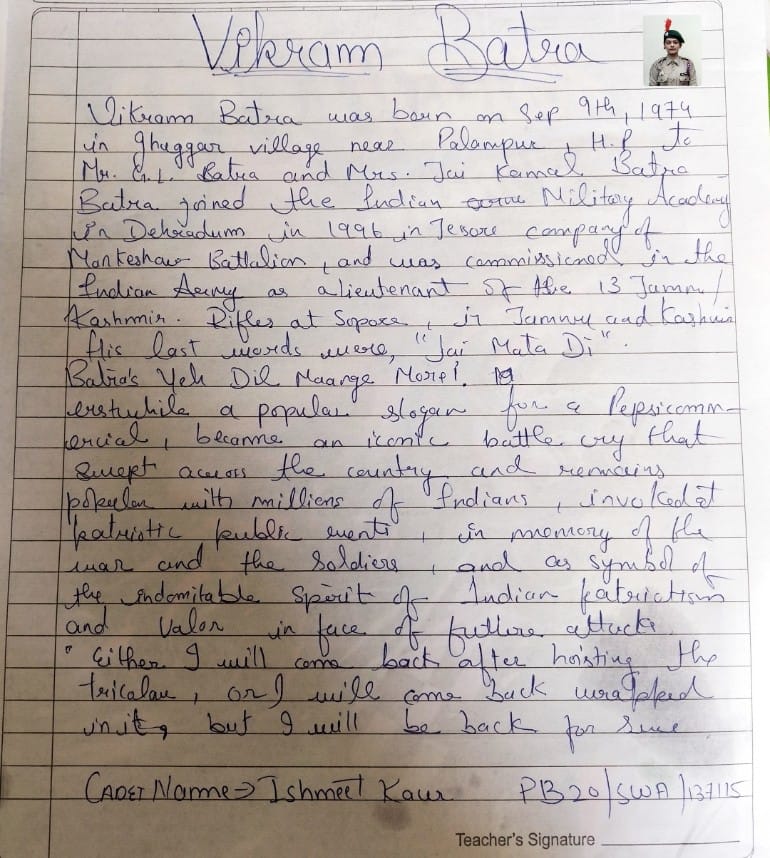 Vikram Batra
Vikram Batra was born on Sep 9th, 1974
in ghuggar village near Palampur, H.P to
Mr. G.L. Batra and Mrs. Jai Kamal Batra
Batra joined the Indian Military Academy
in Dehradunn in 1996 in Jesore company of
Mankeshaw Battalion, and was commissioned in the
Indian Army as a lieutenant of the 13 Jammu/
Kashmir. Rifles at Sopore, in Jammu and Kashmir
His last words were, "Jai Mata Di".
Batra's Yeh Dil Maange More!.
erstwhile a popular slogan for a Pepsicomm-
ercial, became an iconic battle cry that
swept across the country and remains
popular with millions of Indians, invoked at
patriotic public events, in memory of the
war and the Soldiers, and as symbol of
the indomitable Spirit of Indian patriotism
and Valor in face of future attack.
"Either I will come back after hoisting the
tricolau, or I will come back wrapped
in it, but I will be back for sure
CADET Name => Ishmeet Kaur PB20/SWA/137115
Teacher's Signature